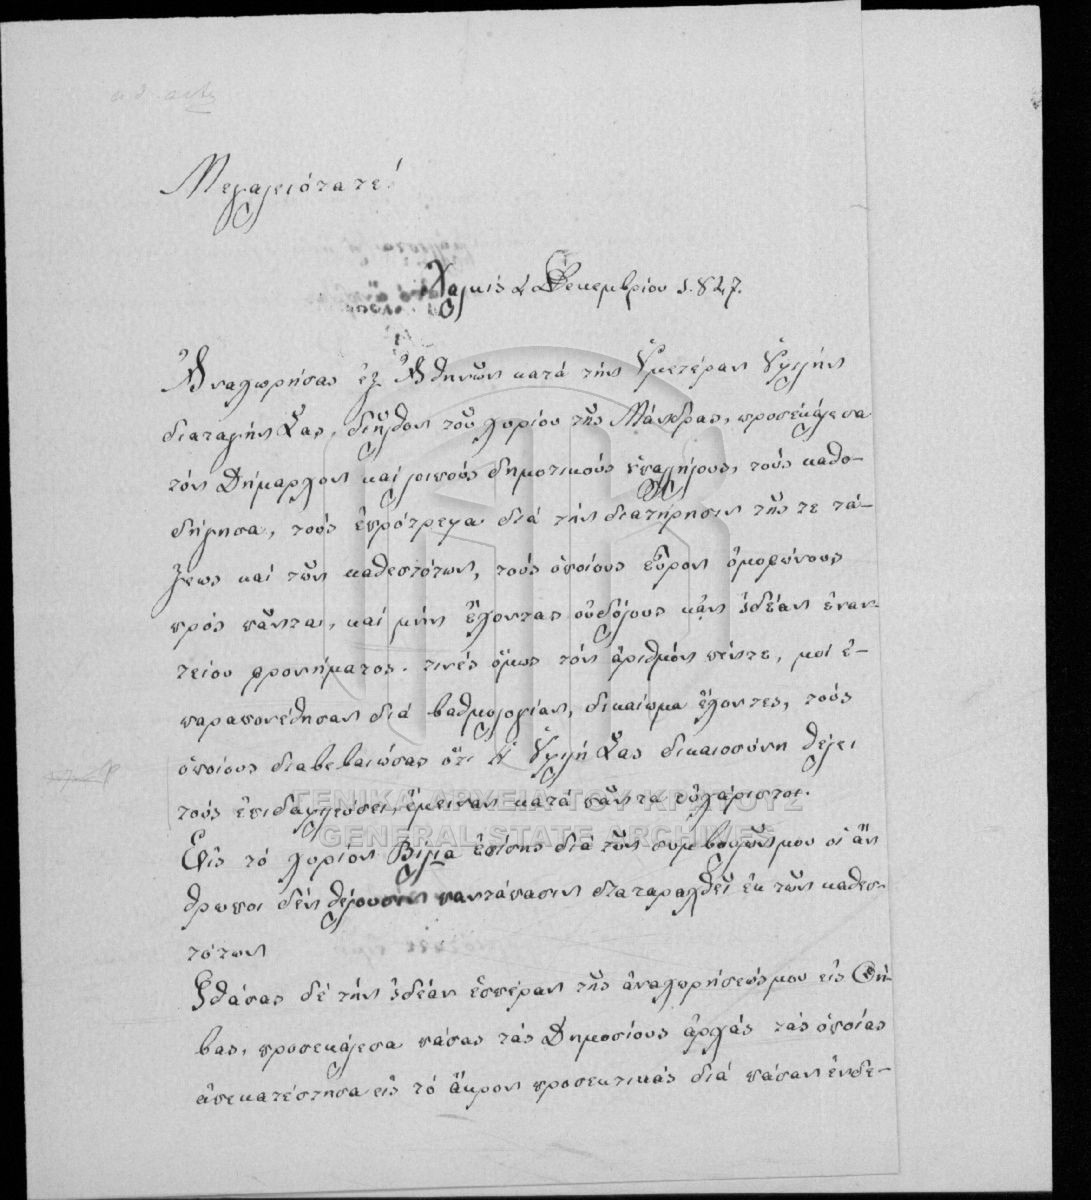 Μεγαλειότατε!
Χαλκίς 2 Δεκεμβρίου 1847.
Ἀναχωρήσας ἐξ Ἀθηνῶν κατά τήν Ὑμετέραν Ὑψηλήν
διαταγήν Σας, διῆλθον τοῦ χωρίου τῆς Μάνδρας, προσεκάλεσα
τόν Δήμαρχον καί λοιπούς δημοτικούς ὑπαλλήλους, τούς καθο-
δήγησα, τούς ἐπρότρεψα διά τήν διατήρησιν τῆς τε τά-
ξεως καί τῶν καθεστότων, τούς ὁποίους εὗρον ὁμοφώνους
πρός πᾶντα, καί μήν ἔχοντας οὐδόλους κᾀν ἰδέαν ἐναν-
τείου φρονήματος. τινές ὅμως τόν ἀριθμόν πέντε, μοί ἐ-
παραπονέθησαν διά βαθμολογίαν, δικαίωμα ἔχοντες, τούς
ὁποίους διαβεβαιώσας ὅτι ἡ Ὑψηλή Σας δικαιοσύνη θέλει
τούς ἐπιδαψιλεύσει, ἔμειναν κατά πᾶντα εὐχάριστοι.
Εἰς τό χωρίον Βίλια ἐπίσης διά τῶν συμβουλῶν μου οἱ ἄν
θρωποι δέν θέλουσιν παντάπασιν διαταραχθεῖ ἐκ τῶν καθεσ-
τότων
Φθάσας δέ τήν ἰδέαν ἑσπέραν τῆς ἀναχωρήσεώς μου εἰς Θή-
βας, προσεκάλεσα πάσας τάς Δημοσίους ἀρχάς τάς ὁποίας
ἀπεκατέστησα εἰς τό ἄκρον προσεκτικάς διά πάσαν ἐνδε-
ΓΕΝΙΚΑ ΑΡΧΕΙΑ ΤΟΥ ΚΡΑΤΟΥΣ
GENERAL STATE ARCHIVES